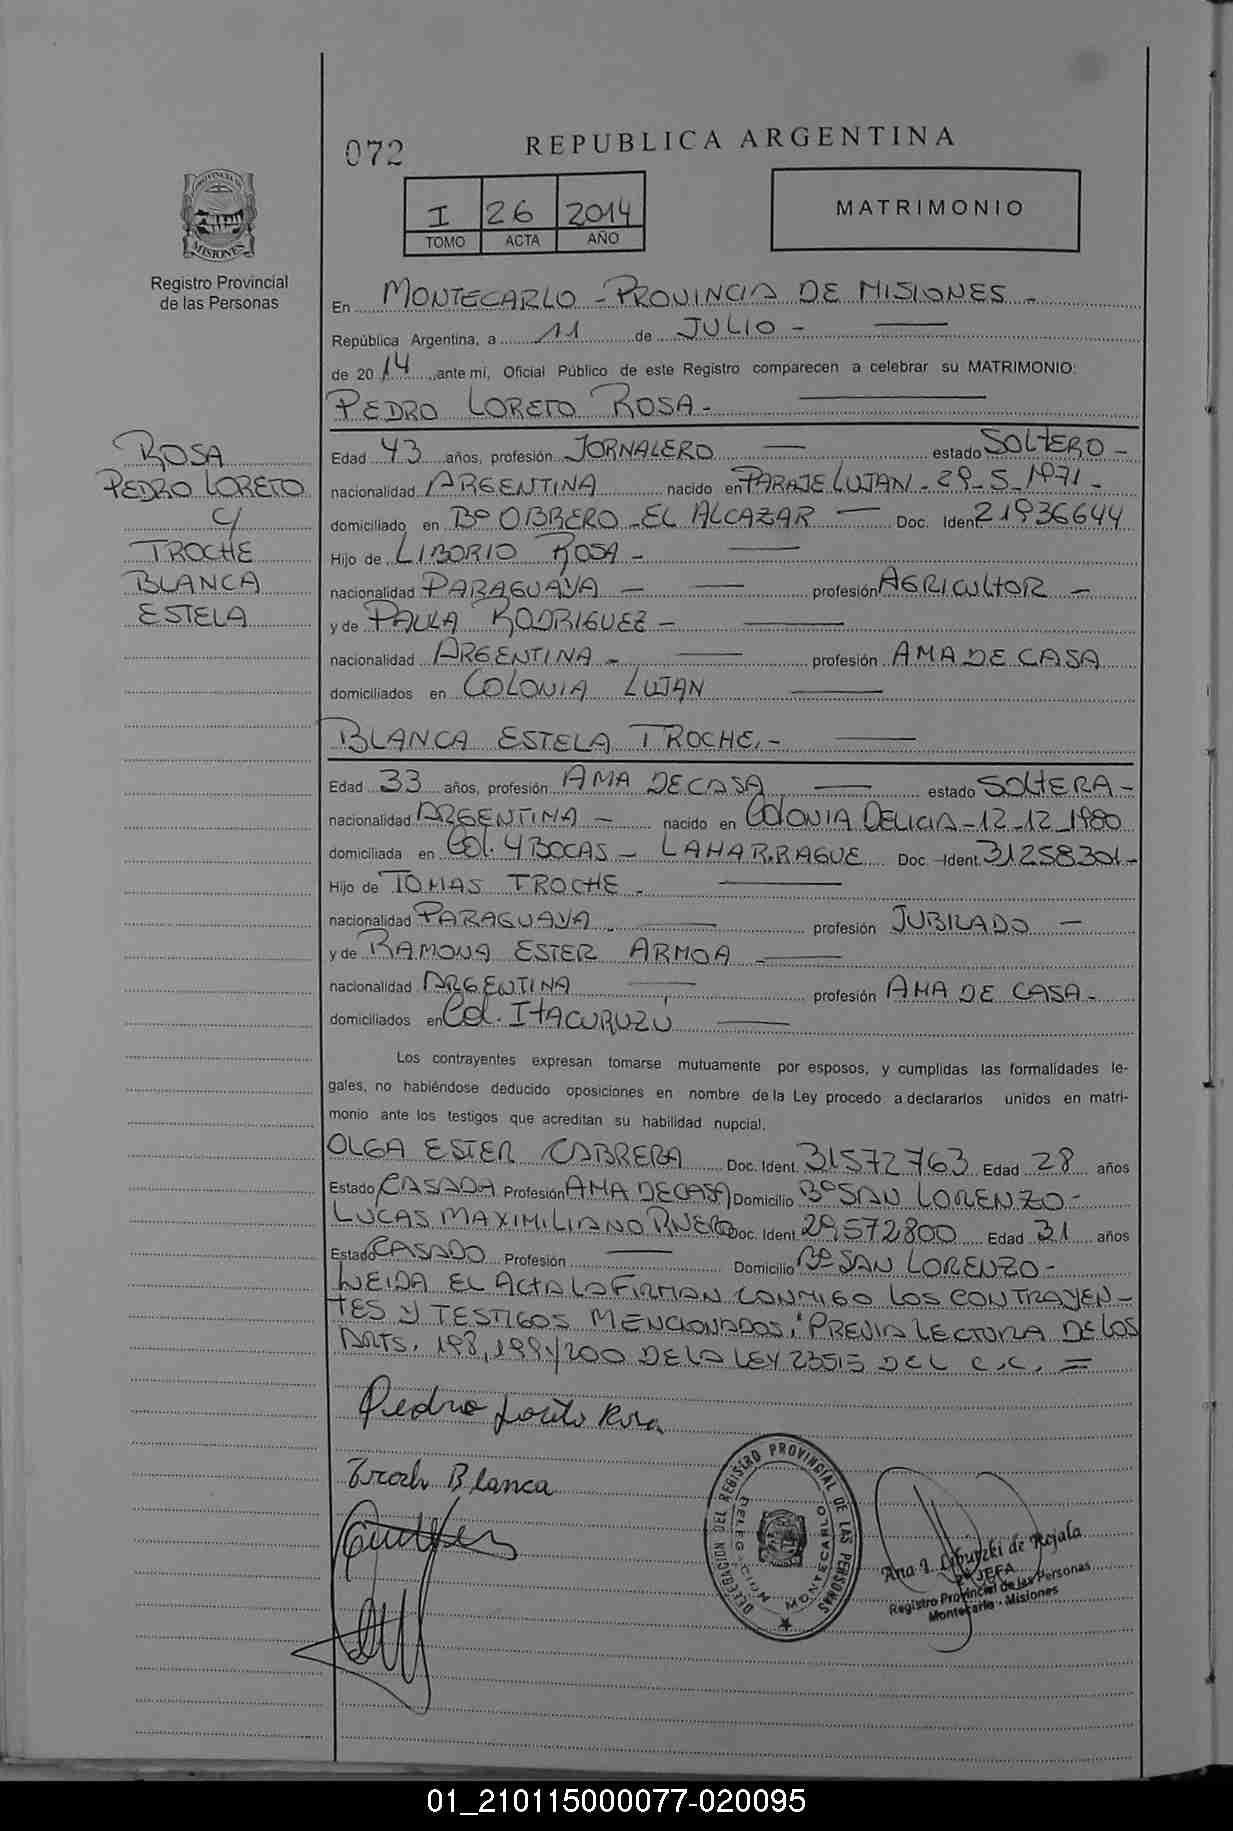 072
REPUBLICA ARGENTINA
I 26 2014
TOMO ACTA AÑO
MATRIMONIO
PROVINCIA DE
MISIONES
Registro Provincial
de las Personas
En MONTECARLO - PROVINCIA DE MISIONES -
República Argentina, a 11 de JULIO -
de 2014, ante mi, Oficial Público de este Registro comparecen a celebrar su MATRIMONIO:
PEDRO LORETO ROSA -
ROSA
PEDRO LORETO
Y
TROCHE
BLANCA
ESTELA
Edad 43 años, profesión JORNALERO estado SOLTERO -
nacionalidad ARGENTINA nacido en PARAJE LUJAN - 29-5-1971 -
domiciliado en Bº OBRERO - EL ALCAZAR Doc. Ident 21936644
Hijo de LIBORIO ROSA -
nacionalidad PARAGUAYA - profesión AGRICULTOR -
y de PAULA RODRIGUEZ -
nacionalidad ARGENTINA - profesión AMA DE CASA
domiciliados en COLONIA LUJAN
BLANCA ESTELA TROCHE. -
Edad 33 años, profesión AMA DE CASA estado SOLTERA -
nacionalidad ARGENTINA - nacido en COLONIA DELICIA - 12-12-1980
domiciliada en COL. 4 BOCAS - LAHARRAGUE Doc. Ident. 31258301 -
Hijo de TOMAS TROCHE -
nacionalidad PARAGUAYA profesión JUBILADO -
y de RAMONA ESTER ARMOA -
nacionalidad ARGENTINA profesión AMA DE CASA -
domiciliados en COL. ITACURUZU
Los contrayentes expresan tomarse mutuamente por esposos, y cumplidas las formalidades le-
gales, no habiéndose deducido oposiciones en nombre de la Ley procedo a declararlos unidos en matri-
monio ante los testigos que acreditan su habilidad nupcial.
OLGA ESTER CABRERA Doc. Ident. 31572763 Edad 28 años
Estado CASADA Profesión AMA DE CASA Domicilio Bº SAN LORENZO -
LUCAS MAXIMILIANO RIVERO Doc. Ident. 29,572800 Edad 31 años
Estado CASADO Profesión Domicilio Bº SAN LORENZO -
LEIDA EL ACTA LA FIRMAN CONMIGO LOS CONTRAYEN-
TES Y TESTIGOS MENCIONADOS, PREVIA LECTURA DE LOS
ARTS. 198, 199 y 200 DE LA LEY 23515 DEL C.C. =
Pedro Loreto Rosa
Troch Blanca
DELEGACION DEL REGISTRO PROVINCIAL DE LAS PERSONAS
DELEGACION MONTECARLO
Ana I. de Rejala
2ª JEFA
Registro Provincial de las Personas
Montecarlo - Misiones
01_210115000077-020095